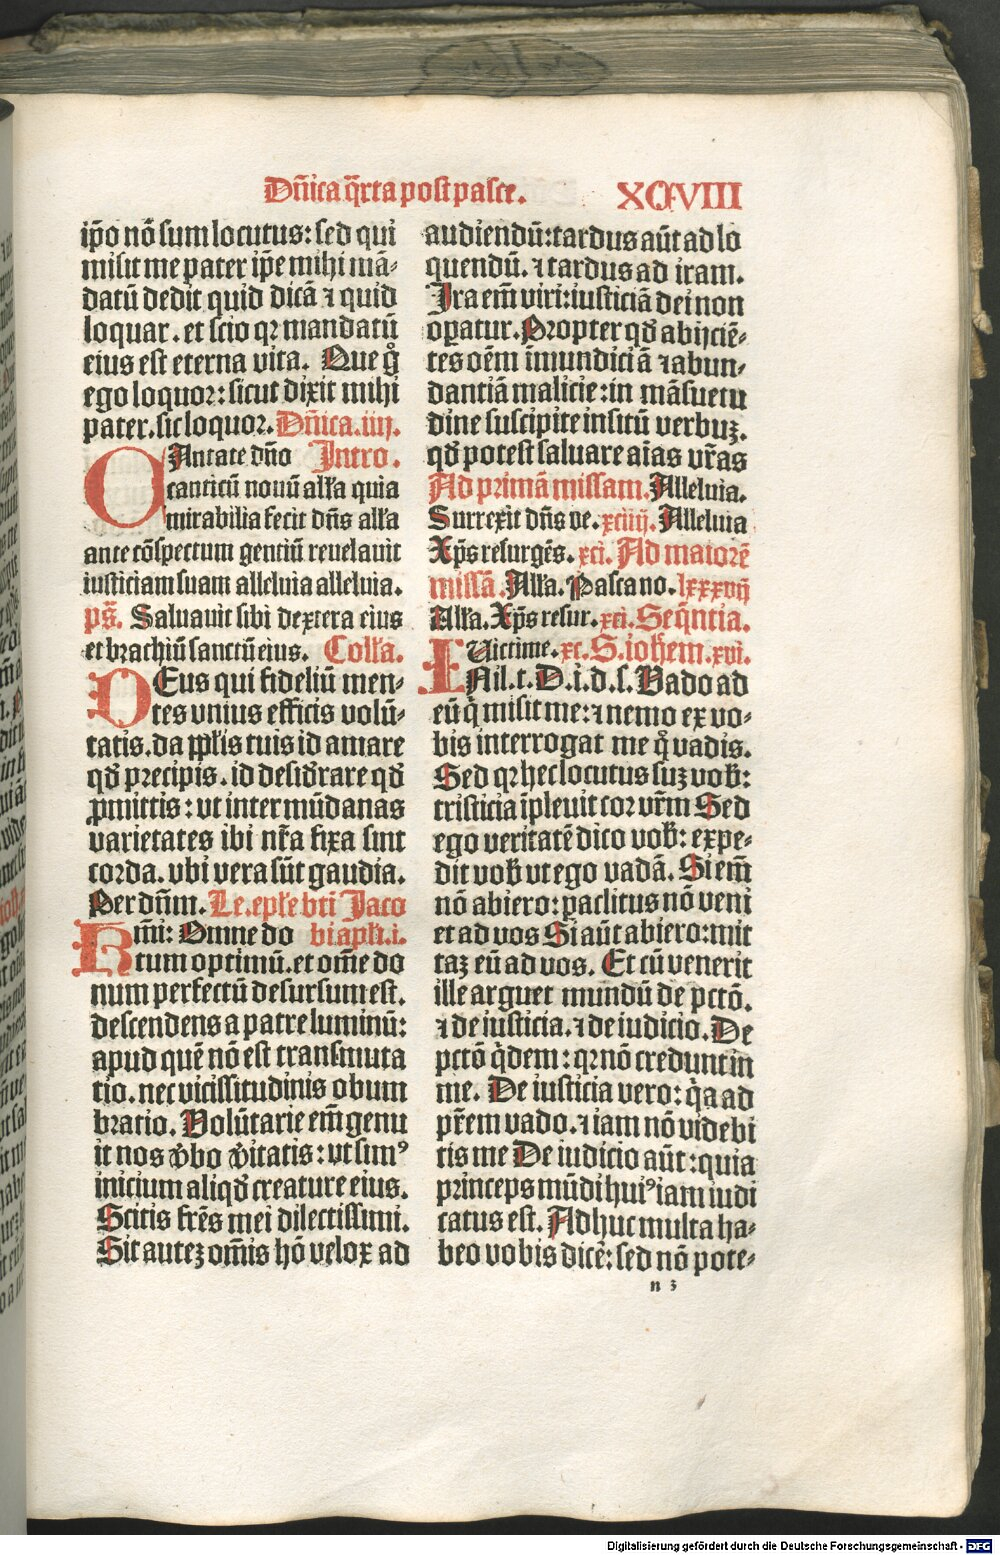 Dn̄ica q̄rta post pasce. XCVIII
ip̄o nō sum locutus: sed qui
misit me pater ip̄e mihi mā-
datū dedit quid dicā ⁊ quid
loquar. et scio qꝛ mandatū
eius est eterna vita. Que gͦ
ego loquor: sicut dixit mihi
pater. sic loquor. Dn̄ica. iiij.
CAntate dn̄o Intro.
canticū nouū all'a quia
mirabilia fecit dn̄s all'a
ante cōspectum gentiū reuelauit
iusticiam suam alleluia alleluia.
ps̄. Saluauit sibi dextera eius
et brachiū sanctū eius. Coll'a.
DEus qui fideliū men-
tes vnius efficis volū-
tatis. da ppl'is tuis id amare
qd̄ precipis. id desid̄rare qd̄
ꝓmittis: vt inter mūdanas
varietates ibi nr̄a fixa sint
corda. vbi vera sūt gaudia.
Per dn̄m. Le. epl'e bt̄i Jaco
Km̄i: Omne do bi apl'i. i.
tum optimū. et om̄e do
num perfectū desursum est.
descendens a patre luminū:
apud quē nō est transmuta
tio. nec vicissitudinis obum
bratio. Volūtarie em̄ genu
it nos v̄bo v̄itatis: vt simꝰ
inicium aliqd̄ creature eius.
Scitis frēs mei dilectissimi.
Sit autez om̄is hō velox ad
audiendū: tardus aūt ad lo
quendū. ⁊ tardus ad iram.
Ira em̄ viri: iusticiā dei non
oꝑatur. Propter qd̄ abijciē-
tes oēm īmundiciā ⁊ abun-
dantiā malicie: in māsuetu
dine suscipite insitū verbuz.
qd̄ potest saluare aīas vr̄as
Ad primā missam. Alleluia.
Surrexit dn̄s ve. xciiij. Alleluia
Xp̄s resurgēs. xci. Ad maiorē
missā. All'a. Pasca no. lxxxvij
All'a. Xp̄s resur. xci. Seq̄ntia.
Victime. xc. S. ioh'em. xvi.
INil. t. D. i. d. s. Vado ad
eū q̇ misit me: ⁊ nemo ex vo-
bis interrogat me q̊ vadis.
Sed qꝛ hec locutus suz vob':
tristicia īpleuit cor vr̄m Sed
ego veritatē dico vob': expe-
dit vob' vt ego vadā. Si em̄
nō abiero: paclitus nō veni
et ad vos Si aūt abiero: mit
taz eū ad vos. Et cū venerit
ille arguet mundū de pctō.
⁊ de iusticia. ⁊ de iudicio. De
pctō q̇dem: qꝛ nō credunt in
me. De iusticia vero: q̇a ad
pr̄em vado. ⁊ iam nō videbi
tis me De iudicio aūt: quia
princeps mūdi huiꝰ iam iudi
catus est. Adhuc multa ha-
beo vobis dicē: sed nō pote-
n 3
Digitalisierung gefördert durch die Deutsche Forschungsgemeinschaft - DFG